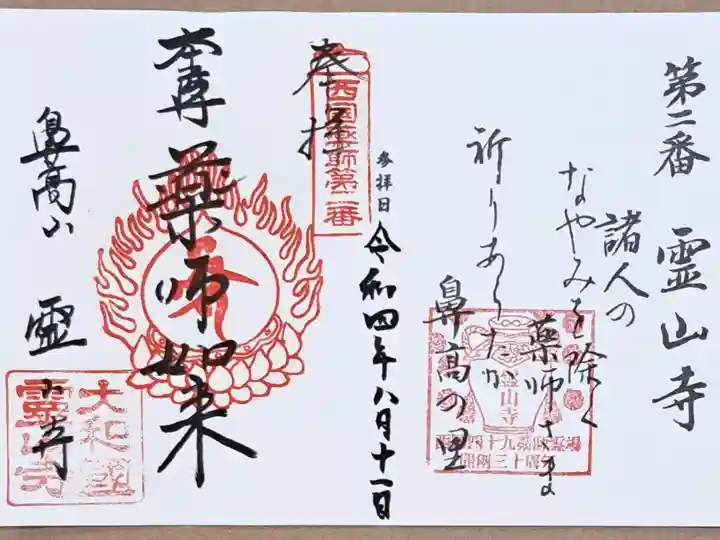 第二番 霊山寺
諸人の
なやみを除く
薬師さま
祈りあらたか
鼻高の里
霊山寺
西国四十九薬師霊場
開創三十周年
奉拝
西国薬師第二番
参拝日 令和四年八月十一日
本尊 薬師如来
鼻高山 霊山寺
大和國
霊山寺